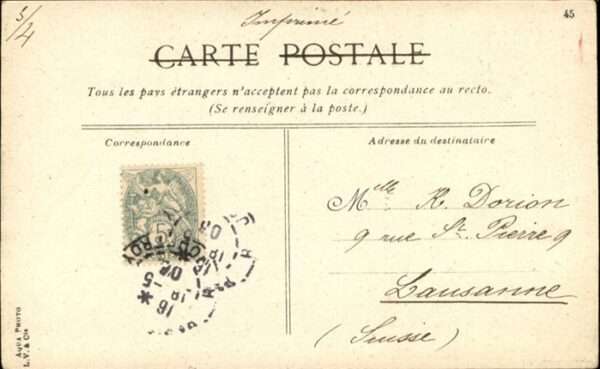 5/4
Imprimé
45
CARTE POSTALE
Tous les pays étrangers n'acceptent pas la correspondance au recto.
(Se renseigner à la poste.)
Correspondance
Adresse du destinataire
5
Mlle R. Dorion
9 rue St. Pierre 9
Lausanne
(Suisse)
16
AQUA PHOTO
L.V. & Cie